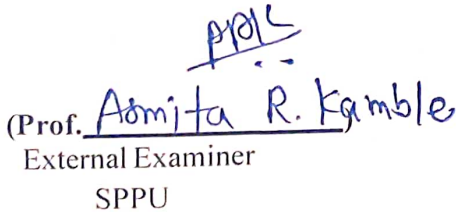 (Prof. Asmita R. Kamble
External Examiner
SPPU